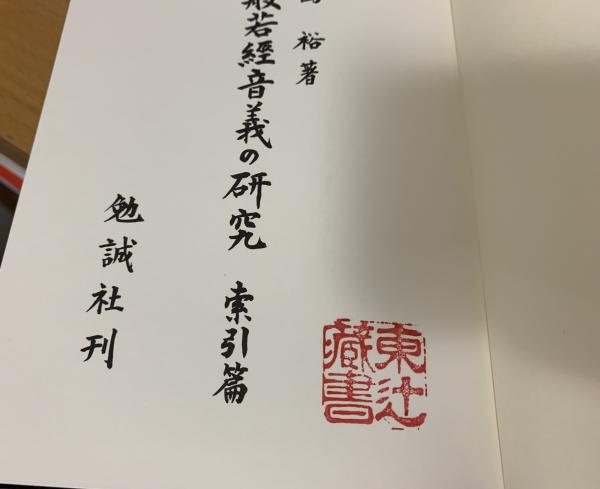 裕著
般若經音義の研究 索引篇
勉誠社刊
東辻
藏書